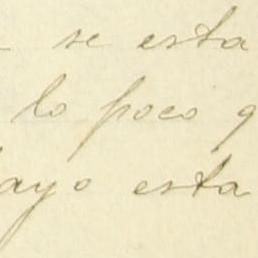 se esta
lo poco q
ayo esta